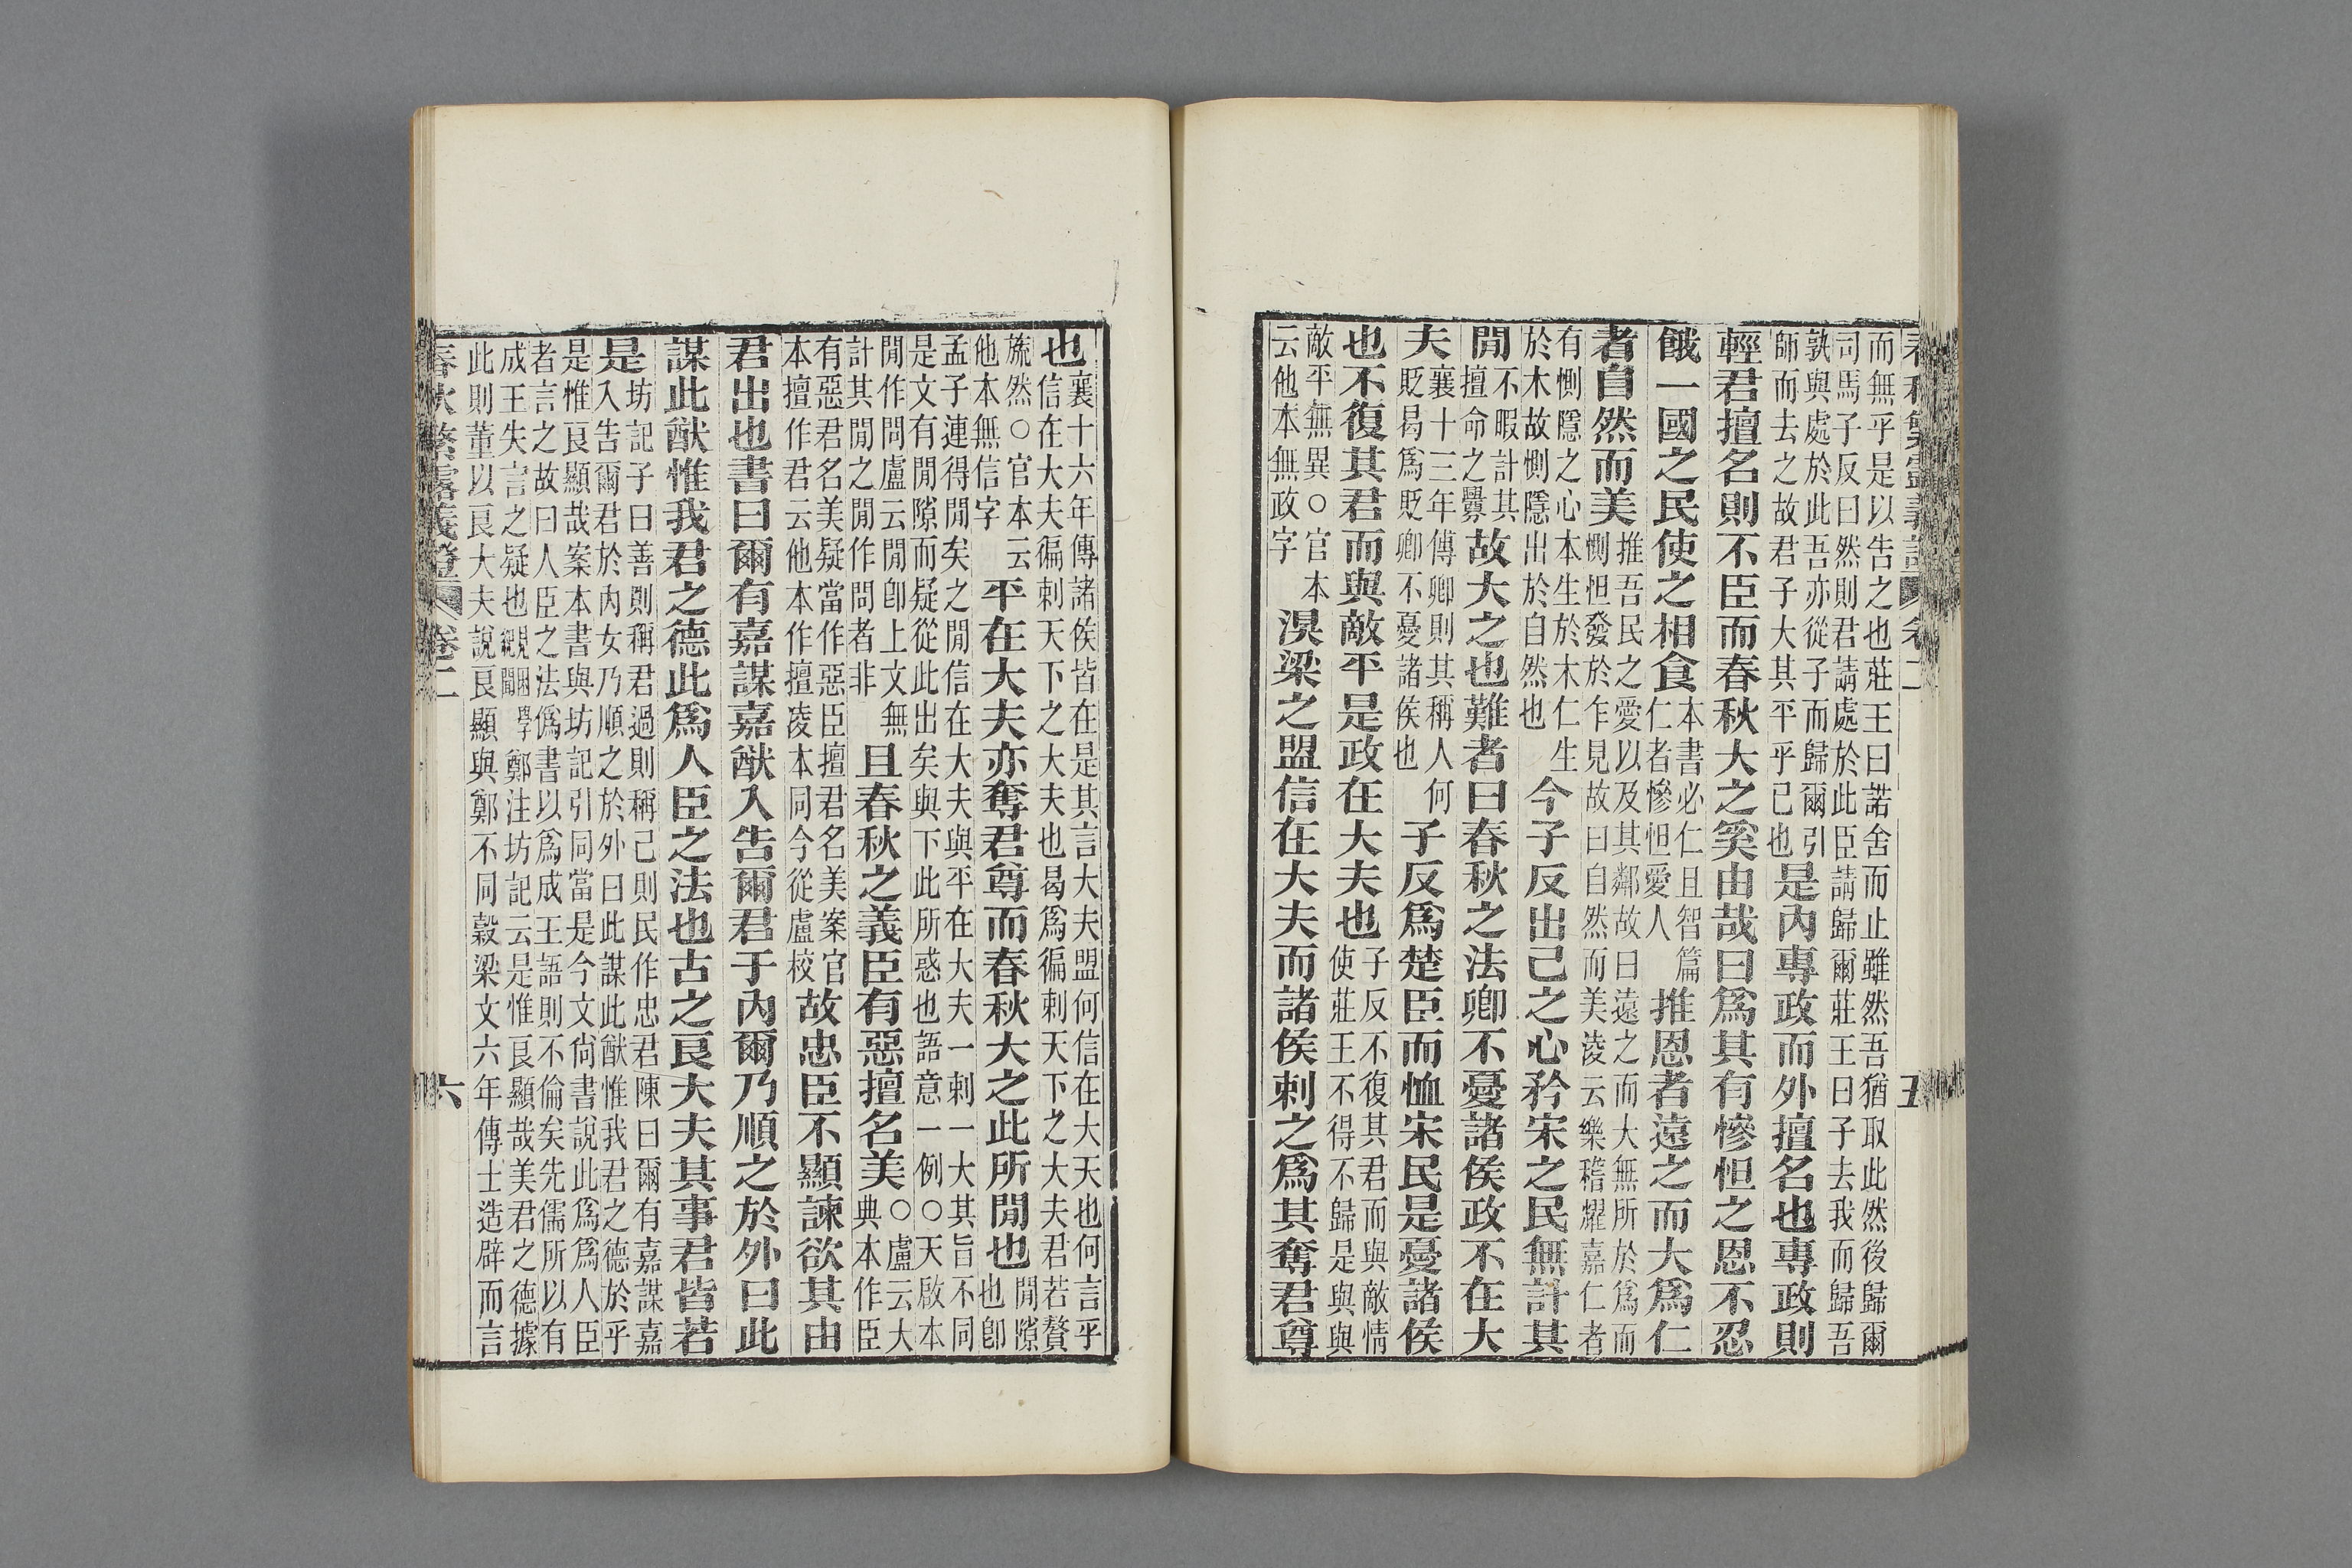 春秋繁露義證 卷二 五
而無乎是以告之也莊王曰諾舍而止雖然吾猶取此然後歸爾
司馬子反曰然則君請處於此臣請歸爾莊王曰子去我而歸吾
孰與處於此吾亦從子而歸爾引
師而去之故君子大其平乎已也
是內專政而外擅名也專政則
輕君擅名則不臣而春秋大之奚由哉曰爲其有慘怛之恩不忍
餓一國之民使之相食
本書必仁且智篇
仁者慘怛愛人
推恩者遠之而大爲仁
者自然而美
推吾民之愛以及其鄰故曰遠之而大無所於爲而
惻怛發於乍見故曰自然而美淩云樂稽耀嘉仁者
有惻隱之心本生於木仁生
於木故惻隱出於自然也
今子反出己之心矜宋之民無計其
閒
不暇計其
擅命之釁
故大之也難者曰春秋之法卿不憂諸侯政不在大
夫
襄十三年傳卿則其稱人何
貶曷爲貶卿不憂諸侯也
子反爲楚臣而恤宋民是憂諸侯
也不復其君而與敵平是政在大夫也
子反不復其君而與敵情
使莊王不得不歸是與與
敵平無異○官本
云他本無政字
溴梁之盟信在大夫而諸侯刺之爲其奪君尊
也
襄十六年傳諸侯皆在是其言大夫盟何信在大夫也何言乎
信在大夫徧刺天下之大夫也曷爲徧刺天下之大夫君若贅
旒然○官本云
他本無信字
平在大夫亦奪君尊而春秋大之此所閒也
閒隙
也卽
孟子連得閒矣之閒信在大夫與平在大夫一刺一大其旨不同
是文有閒隙而疑從此出矣與下此所惑也語意一例○天啟本
閒作問盧云閒卽上文無
計其閒之閒作問者非
且春秋之義臣有惡擅名美
○盧云大
典本作臣
有惡君名美疑當作惡臣擅君名美案官
本擅作君云他本作擅淩本同今從盧校
故忠臣不顯諫欲其由
君出也書曰爾有嘉謀嘉猷入告爾君于內爾乃順之於外曰此
謀此猷惟我君之德此爲人臣之法也古之良大夫其事君皆若
是
坊記子曰善則稱君過則稱己則民作忠君陳曰爾有嘉謀嘉
入告爾君於內女乃順之於外曰此謀此猷惟我君之德於乎
是惟良顯哉案本書與坊記引同當是今文尙書說此爲爲人臣
者言之故曰人臣之法僞書以爲成王語則不倫矣先儒所以有
成王失言之疑也
困學
鄭注坊記云是惟良顯哉美君之德據
此則董以良大夫說良顯與鄭不同穀梁文六年傳士造辟而言
春秋繁露義證 卷二 六